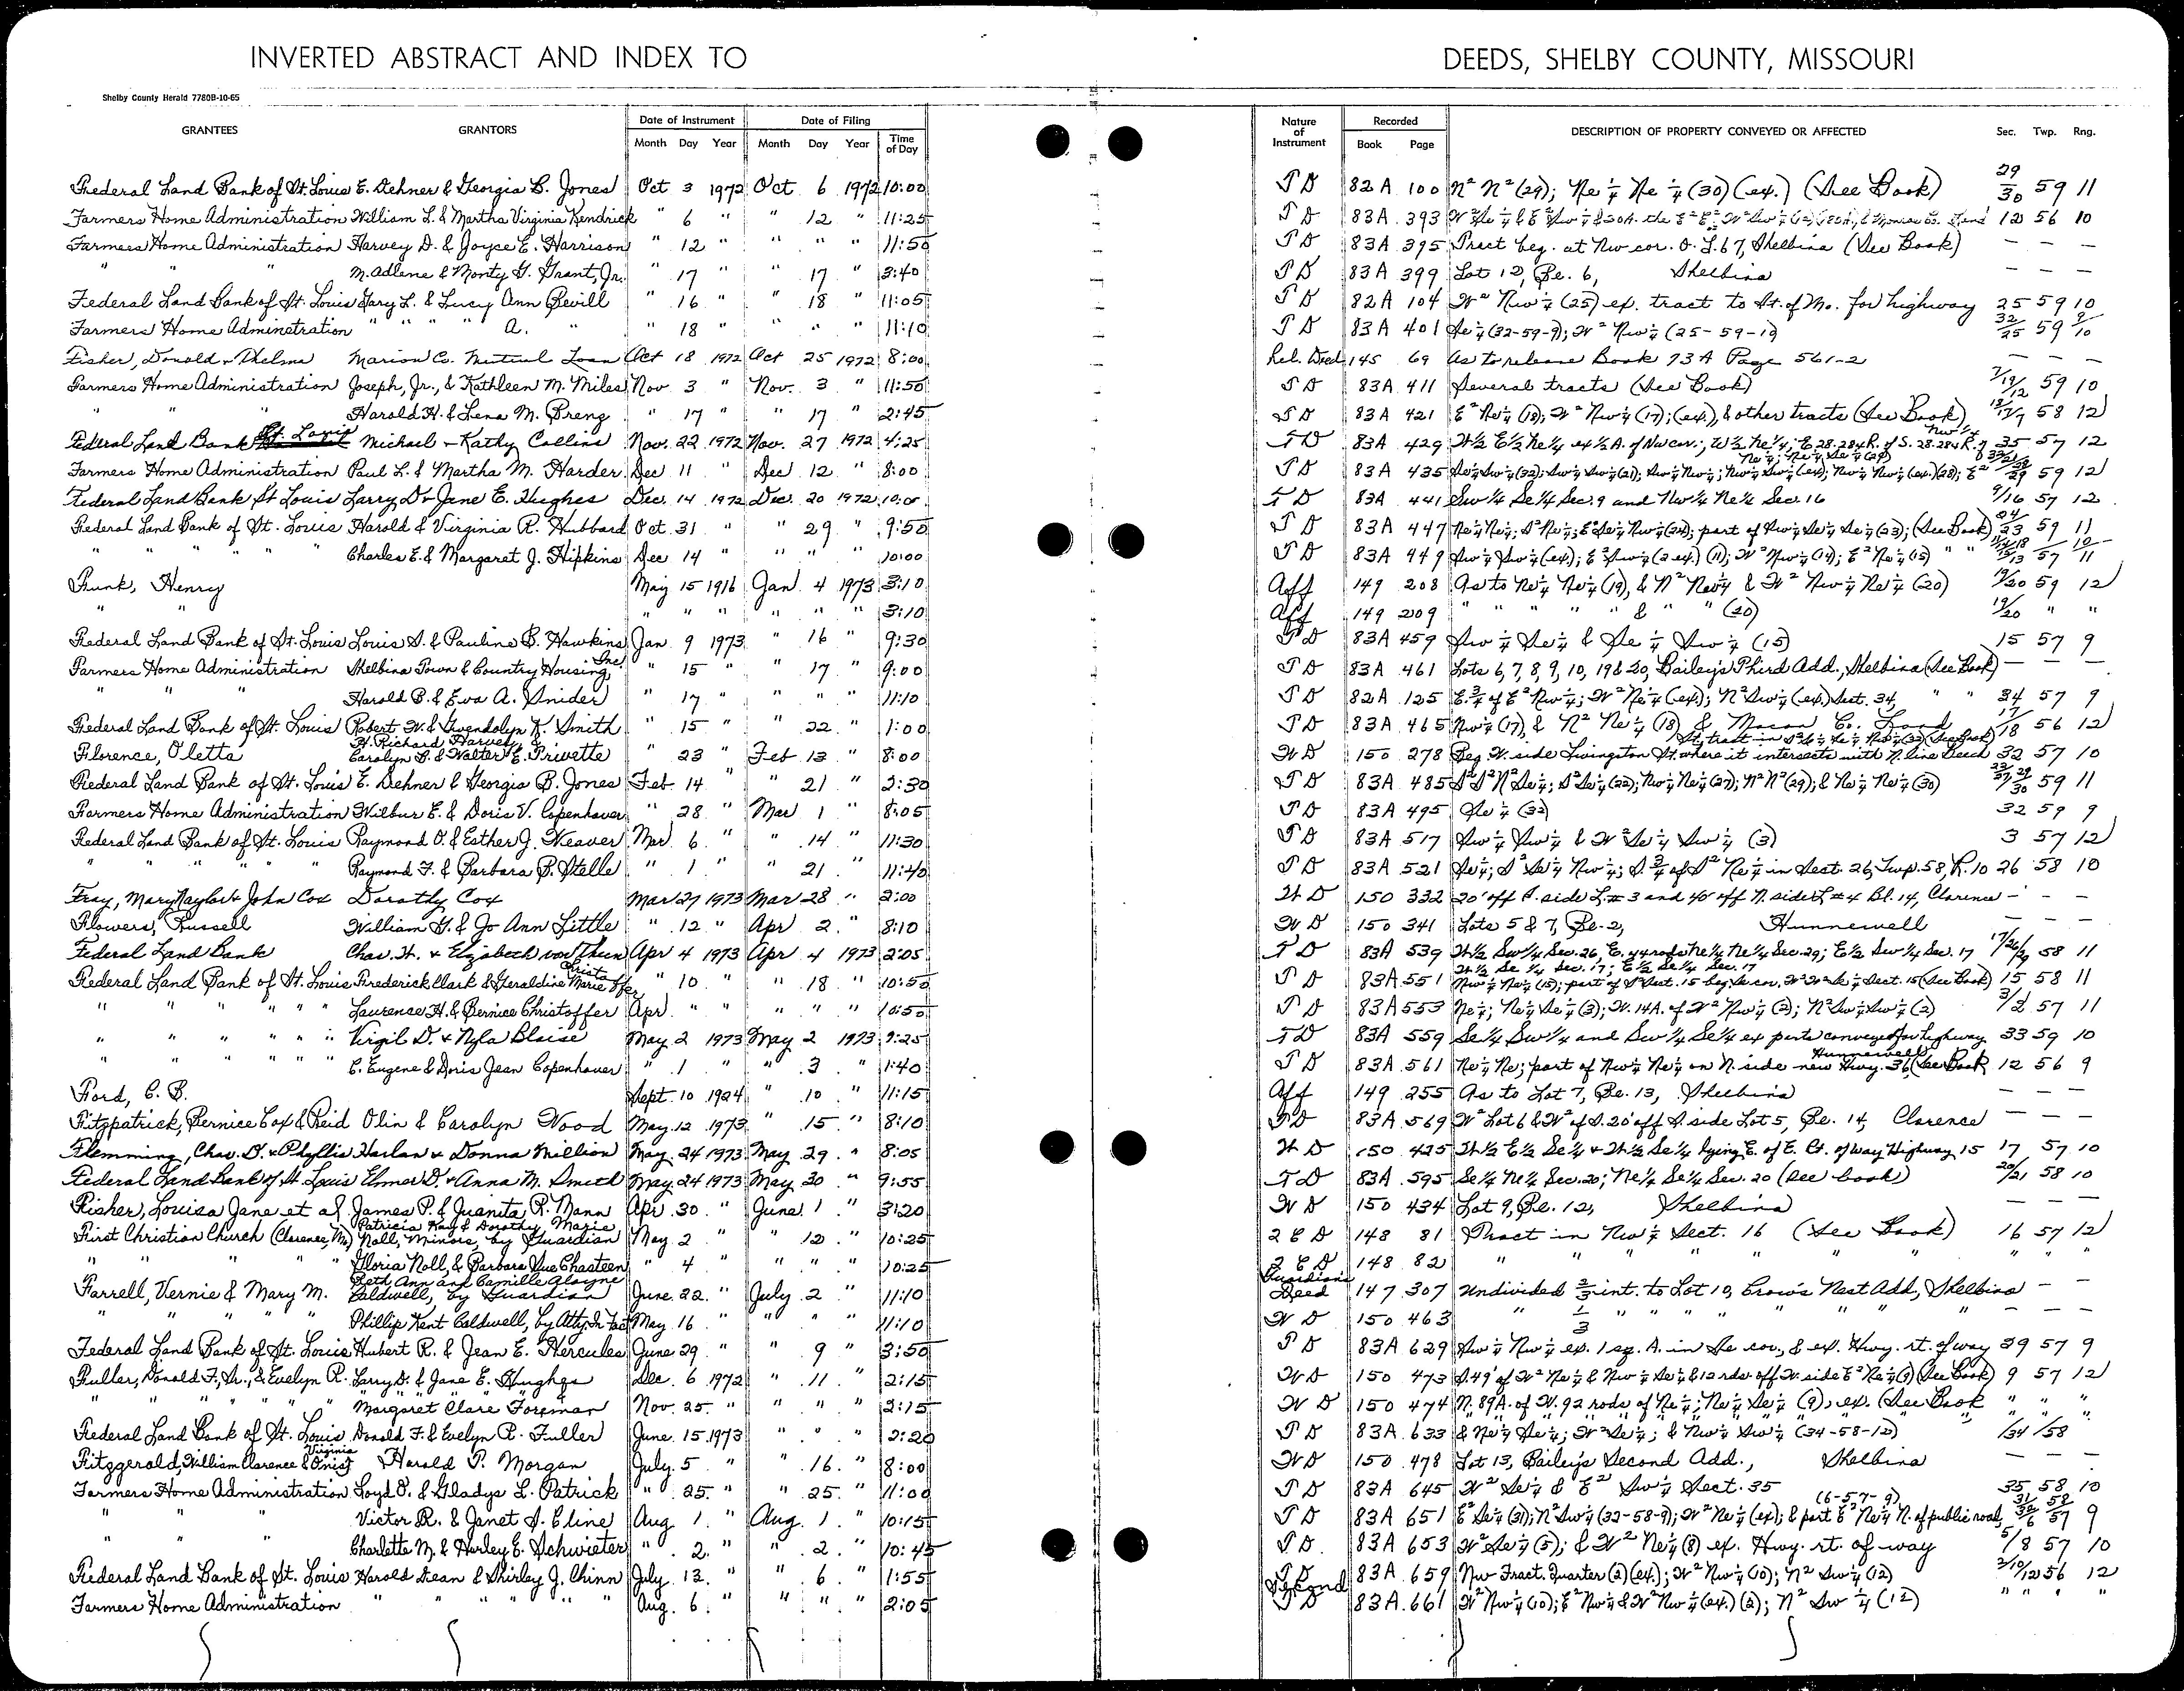 INVERTED ABSTRACT AND INDEX TO DEEDS, SHELBY COUNTY, MISSOURI
Shelby County Herald 7780B-10-65
GRANTEES GRANTORS Date of Instrument Month Day Year Date of Filing Month Day Year Time of Day Nature of Instrument Recorded Book Page DESCRIPTION OF PROPERTY CONVEYED OR AFFECTED Sec. Twp. Rng.
Federal Land Bank of St. Louis E. Dehner & Georgia B. Jones Oct 3 1972 Oct 6 1972 10:00 T D 82A 100 N² N² (29); Ne ¼ Ne ¼ (30) (ex.) (See Book) 29/30 59 11
Farmers Home Administration William L. & Martha Virginia Kendrick " 6 " " 12 " 11:25 T D 83A 393 12 56 10
Farmers Home Administration Harvey D. & Joyce E. Harrison " 12 " " " " 11:50 T D 83A 395 Tract beg. at Nw cor. O. L. 67, Shelbina (See Book) — — —
" " " M. Adlene & Monty G. Grant, Jr. " 17 " " 17 " 3:40 T D 83A 399 Lot 12, Bl. 6, Shelbina — — —
Federal Land Bank of St. Louis Gary L. & Lucy Ann Bevill " 16 " " 18 " 11:05 T D 82A 104 W² Nw ¼ (25) ex. tract to St. of Mo. for highway 25 59 10
Farmers Home Adminstration " " " A. " " 18 " " " " 11:10 T D 83A 401 Se ¼ (32-59-9); W² Nw ¼ (25-59-10) 32/25 59 9/10
Fisher, Donald & Thelma Marion Co. Mutual Loan Oct 18 1972 Oct 25 1972 8:00 Rel. Deed 145 69 As to release Book 73A Page 561-2 — — —
Farmers Home Administration Joseph, Jr., & Kathleen M. Miles Nov. 3 " Nov. 3 " 11:50 T D 83A 411 Several tracts (See Book) 59 10
" " " Harold H. & Lena M. Breng " 17 " " 17 " 2:45 T D 83A 421 E² Ne ¼ (18); W² Nw ¼ (17); (ex.), & other tracts (See Book) 58 12
Federal Land Bank St. Louis Michael & Kathy Collins Nov. 22 1972 Nov. 27 1972 4:25 T D 83A 429 W½ E½ Ne¼ ex ½ A. of Nw cor.; W½ Ne¼; E 28.284 R. of S. 28.284 R. of Nw ¼ 35 57 12
Farmers Home Administration Paul L. & Martha M. Harder Dec 11 " Dec 12 " 8:00 T D 83A 435 59 12
Federal Land Bank St Louis Larry D & Jane E. Hughes Dec. 14 1972 Dec. 20 1972 T D 83A 441 Sw ¼ Se ¼ Sec. 9 and Nw ¼ Ne ¼ Sec. 16 9/16 57 12
Federal Land Bank of St. Louis Harold & Virginia R. Hubbard Oct. 31 " " 29 " 9:50 T D 83A 447 Ne ¼ Ne ¼; S² Ne ¼; E² Se ¼ Nw ¼ (24); part of Sw ¼ Se ¼ Se ¼ (23); (See Book) 59 11
" " " " " Charles E. & Margaret J. Hipkins Dec 14 " " " " 10:00 T D 83A 449 57 10/11
Funk, Henry May 15 1916 Jan. 4 1973 3:10 Aff 149 208 As to Ne ¼ Ne ¼ (19), & N² Nw ¼ & W² Nw ¼ Ne ¼ (20) 19/20 59 12
" " " " " " " " 3:10 Aff 149 209 " " " " " & " " (20) 19/20 " "
Federal Land Bank of St. Louis Louis S. & Pauline B. Hawkins Jan. 9 1973 " 16 " 9:30 T D 83A 459 Sw ¼ Se ¼ & Se ¼ Sw ¼ (15) 15 57 9
Farmers Home Administration Shelbina Town & Country Housing, Inc. " 15 " " 17 " 9:00 T D 83A 461 Lots 6, 7, 8, 9, 10, 19 & 20, Bailey's Third Add., Shelbina (See Book) — — —
" " " Harold B. & Eva A. Snider " 17 " " " " 11:10 T D 82A 125 E. ¾ of E² Nw ¼; W² Ne ¼ (ex.); N² Sw ¼ (ex.) Sect. 34, " " 34 57 9
Federal Land Bank of St. Louis Robert W. & Gwendolyn K. Smith " 15 " " 22 " 1:00 T D 83A 465 Nw ¼ (17), & N² Ne ¼ (18) & Macon Co. Land 17/18 56 12
Florence, Oletta H. Richard Harvey, & Carolyn F. & Walter E. Privette " 23 " Feb 13 " 8:00 W D 150 278 Beg W. side Livingston St. where it intersects with N. line 32 57 10
Federal Land Bank of St. Louis E. Dehner & Georgia B. Jones Feb. 14 " " 21 " 2:30 T D 83A 485 S² S² N² Se ¼; S² Se ¼ (22); Nw ¼ Ne ¼ (27); N² N² (29); & Ne ¼ Ne ¼ (30) 59 11
Farmers Home Administration Wilbur E. & Doris V. Copenhaver " 28 " Mar 1 " 8:05 T D 83A 495 Se ¼ (32) 32 59 9
Federal Land Bank of St. Louis Raymond O. & Esther J. Weaver Mar. 6 " " 14 " 11:30 T D 83A 517 Sw ¼ Sw ¼ & W² Se ¼ Sw ¼ (3) 3 57 12
" " " " " Raymond F. & Barbara B. Stelle " 1 " " 21 " 11:40 T D 83A 521 Se ¼; S² Se ¼ Nw ¼; S. ¾ of S² Ne ¼ in Sect. 26, Twp. 58, R. 10 26 58 10
Fray, Mary Naylor & John Cox Dorothy Cox Mar 27 1973 Mar 28 " 2:00 W D 150 332 20' off S. side L. # 3 and 40' off N. side L # 4 Bl. 14, Clarence — — —
Flowers, Russell William G. & Jo Ann Little " 12 " Apr 2 " 8:10 W D 150 341 Lots 5 & 7, Bl. 2, Hunnewell — — —
Federal Land Bank Chas. H. & Elizabeth von Thun Apr 4 1973 Apr 4 1973 2:05 T D 83A 539 W½ Sw ¼ Sec. 26, E. 44 rods Ne ¼ Ne ¼ Sec. 29; E½ Sw ¼ Sec. 17 W ½ Se ¼ Sec. 17; E½ Se ¼ Sec. 17 58 11
Federal Land Bank of St. Louis Frederick Clark & Geraldine Marie Christoffer " 10 " " 18 " 10:50 T D 83A 551 15 58 11
" " " " " Laurence H. & Bernice Christoffer Apr. " " " " " 10:50 T D 83A 553 Ne ¼; Ne ¼ Se ¼ (3); W. 14A. of W² Nw ¼ (2); N² Sw ¼ Sw ¼ (2) 3/2 57 11
" " " " " Virgil D. & Nyla Blaise May 2 1973 May 2 1973 9:25 T D 83A 559 Se ¼ Sw ¼ and Sw ¼ Se ¼ ex parts conveyed for highway 33 59 10
" " " " " C. Eugene & Doris Jean Copenhaver " 1 " " 3 " 1:40 T D 83A 561 Ne ¼ Ne; part of Nw ¼ Ne ¼ on N. side new Hwy. 36, Hunnewell (See Book 12 56 9
Ford, C. B. Sept. 10 1924 " 10 " 11:15 Aff 149 255 As to Lot 7, Bl. 13, Shelbina — — —
Fitzpatrick, Bernice Cox & Reid Olin & Carolyn Wood May 12 1973 " 15 " 8:10 T D 83A 569 W² Lot 6 & W² of S. 20' off S. side Lot 5, Bl. 14, Clarence — — —
Flemming, Chas. D. & Phyllis Harlan & Donna Million May 24 1973 May 29 " 8:05 W D 150 425 W½ E½ Se ¼ & W½ Se ¼ lying E. of E. Rt. of way Highway 15 17 57 10
Federal Land Bank of St. Louis Elmer D. & Anna M. Smith May 24 1973 May 30 " 9:55 T D 83A 595 Se ¼ Ne ¼ Sec. 20; Ne ¼ Se ¼ Sec. 20 (See book) 20/21 58 10
Fisher, Louisa Jane et al James P. & Juanita R. Mann Apr. 30 " June 1 " 3:20 W D 150 434 Lot 9, Bl. 12, Shelbina — — —
First Christian Church (Clarence, Mo) Patricia Kay & Dorothy Marie Noll, Minors, by Guardian May 2 " " 12 " 10:25 2 C D 148 81 Tract in Nw ¼ Sect. 16 (See Book) 16 57 12
" " " " Gloria Noll, & Barbara Sue Chasteen " 4 " " " " 10:25 2 C D 148 82 " " " " " " " " "
Farrell, Vernie & Mary M. Beth Ann and Camille Alayne Caldwell, by Guardian June 22 " July 2 " 11:10 Guardian's Deed 147 307 Undivided ⅔ int. to Lot 10, Crow's Nest Add, Shelbina — —
" " " " " Phillip Kent Caldwell, by Atty. In Fact May 16 " " " " 11:10 W D 150 463 " ⅓ " " " " " " " " — — —
Federal Land Bank of St. Louis Hubert R. & Jean E. Hercules June 29 " " 9 " 3:50 T D 83A 629 Sw ¼ Nw ¼ ex. 1 sq. A. in Se cor., & ex. Hwy. rt. of way 29 57 9
Fuller, Donald F., Sr., & Evelyn R. Larry D. & Jane E. Hughes Dec. 6 1972 " 11 " 2:15 W D 150 473 S. 49' of W² Ne ¼ & Nw ¼ Se ¼ & 12 rds. off W. side E² Ne ¼ (9) (See Book) 9 57 12
" " " " " Margaret Clare Foreman Nov. 25 " " " " 2:15 W D 150 474 N. 89A. of W. 92 rods of Ne ¼; Ne ¼ Se ¼ (9), ex. (See Book " " "
Federal Land Bank of St. Louis Donald F. & Evelyn R. Fuller June 15 1973 " " " 2:20 T D 83A 633 & Ne ¼ Se ¼; W² Se ¼; & Nw ¼ Sw ¼ (34-58-12) /34 /58
Fitzgerald, William Clarence & Virginia Harold P. Morgan July 5 " " 16 " 8:00 W D 150 478 Lot 13, Bailey's Second Add., Shelbina — — —
Farmers Home Administration Loyd O. & Gladys L. Patrick " 25 " " 25 " 11:00 T D 83A 645 W² Se ¼ & E² Sw ¼ Sect. 35 35 58 10
" " " Victor R. & Janet S. Cline Aug. 1 " Aug. 1 " 10:15 T D 83A 651 E² Se ¼ (31); N² Sw ¼ (32-58-9); W² Ne ¼ (ex); & part E² Ne ¼ N. of public road, (6-57-9) 31/32/6 58/57 9
" " " Charlotte M. & Harley E. Schwieter " 2 " " 2 " 10:45 T D 83A 653 W² Se ¼ (5); & W² Ne ¼ (8) ex. Hwy. rt. of way 5/8 57 10
Federal Land Bank of St. Louis Harold Dean & Shirley J. Chinn July 13 " " 6 " 1:55 T D 83A 659 Nw Fract. Quarter (2) (ex.); W² Nw ¼ (10); N² Sw ¼ (12) 2/10/12 56 12
Farmers Home Administration " " " " " Aug. 6 " " " " 2:05 Second T D 83A 661 W² Nw ¼ (10); E² Nw ¼ & W² Nw ¼ (ex.) (2); N² Sw ¼ (12) " " "